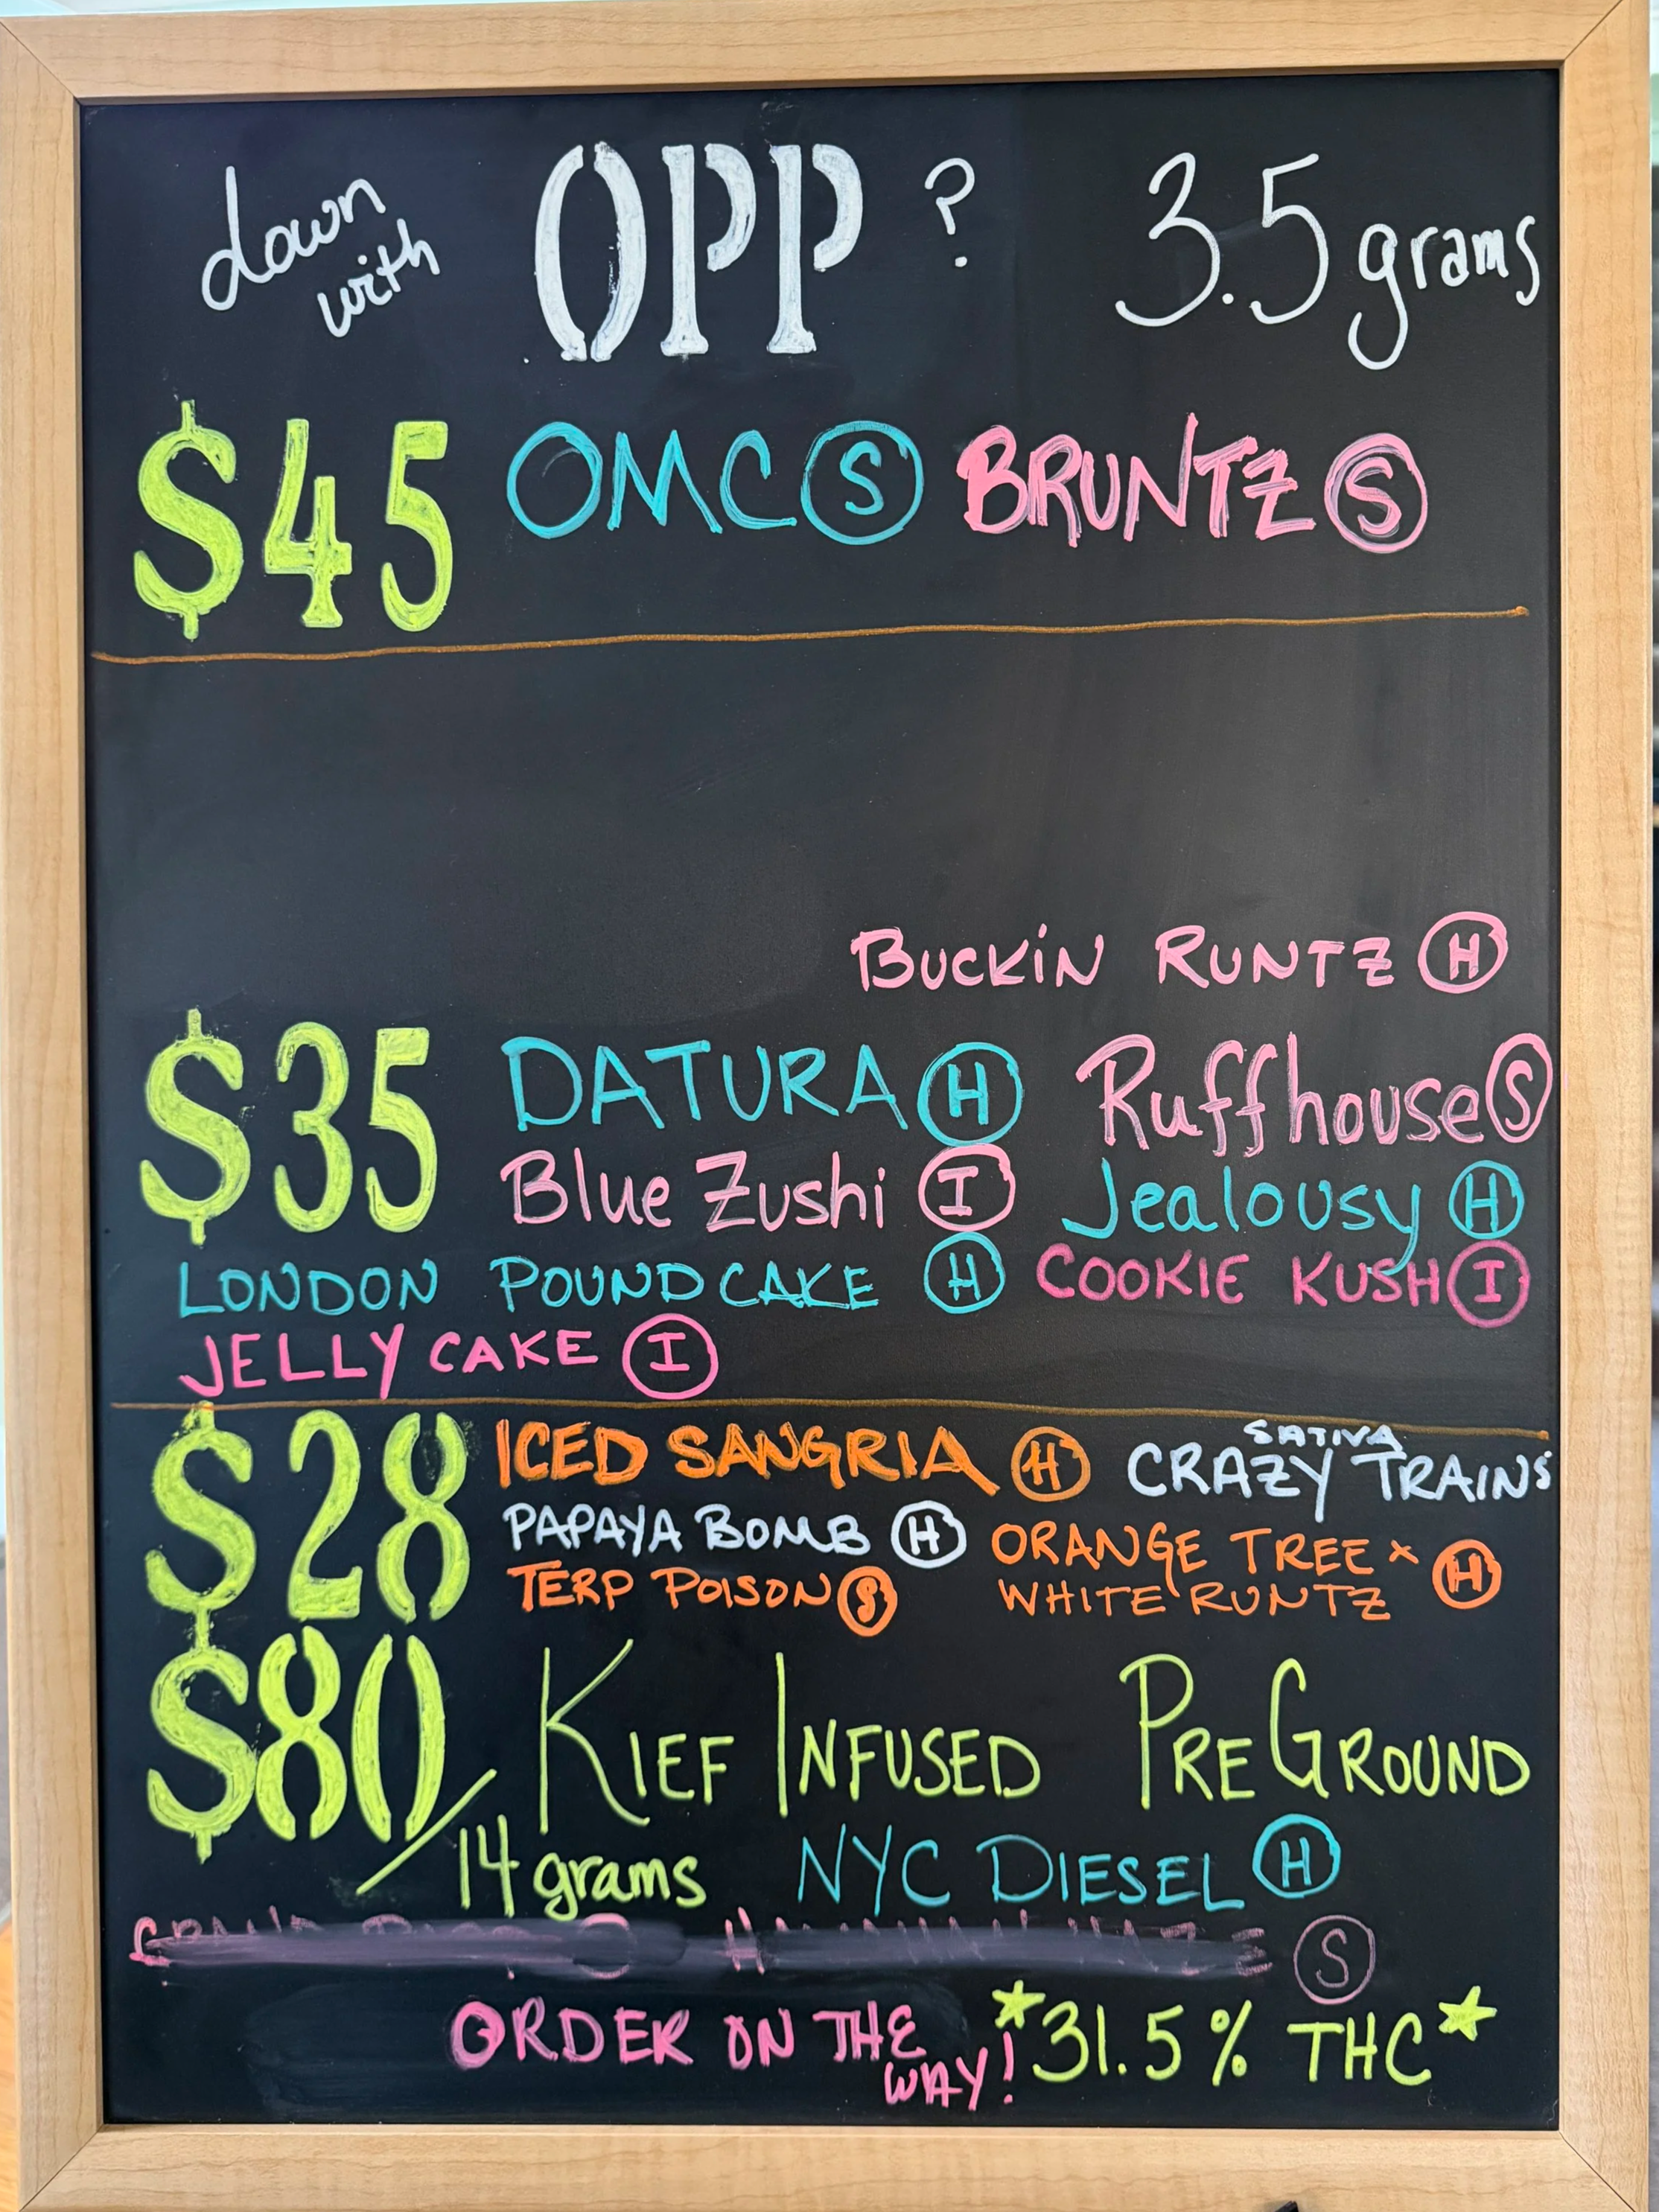 down with OPP ? 3.5 grams
$45 OMC Ⓢ BRUNTZ Ⓢ
BUCKIN RUNTZ Ⓗ
$35 DATURA Ⓗ Ruffhouse Ⓢ
Blue Zushi Ⓘ Jealousy Ⓗ
LONDON POUNDCAKE Ⓗ COOKIE KUSH Ⓘ
JELLY CAKE Ⓘ
$28 ICED SANGRIA Ⓗ SATIVA CRAZY TRAINS
PAPAYA BOMB Ⓗ ORANGE TREE x
TERP POISON Ⓢ WHITE RUNTZ Ⓗ
$80/14 grams KIEF INFUSED PRE GROUND
NYC DIESEL Ⓗ
Ⓢ
ORDER ON THE WAY! *31.5% THC*